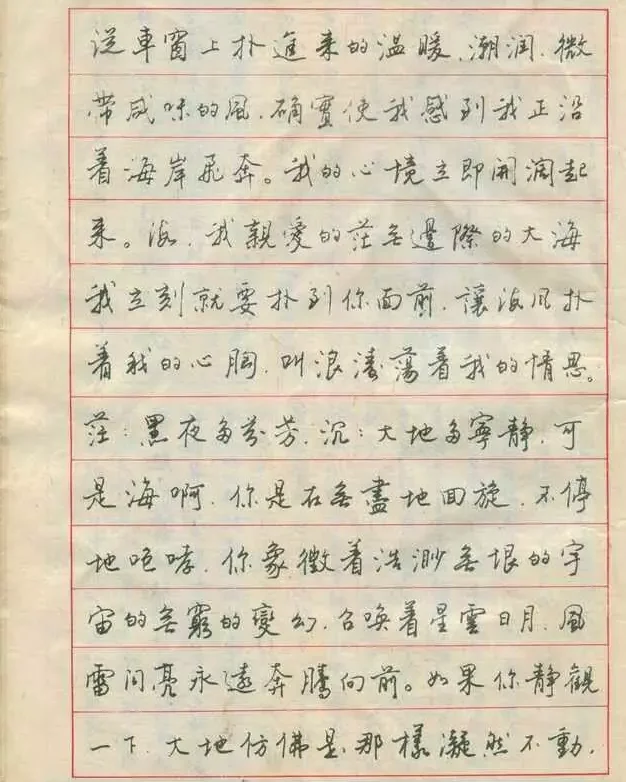 從車窗上扑進来的温暖、潮润、微
帶咸味的風、确實使我感到我正沿
着海岸飛奔。我的心境立即開阔起
来。海、我親愛的茫無邊際的大海
我立刻就要扑到你面前、讓海风扑
着我的心胸、叫浪濤蕩着我的情思。
茫：黑夜多芬芳、沉：大地多寧静、可
是海啊、你是在無盡地回旋、不停
地咆哮、你象徵着浩渺無垠的宇
宙的無窮的變幻、召唤着星雲日月、風
雷闪亮永遠奔騰向前。如果你静觀
一下、大地仿佛是那樣凝然不動、